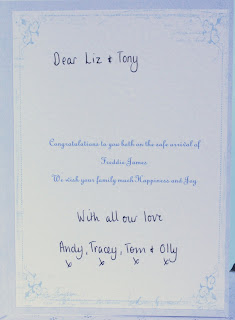 Dear Liz & Tony
Congratulations to you both on the safe arrival of
Freddie James
We wish your family much Happiness and Joy
With all our love
Andy, Tracey, Tom & Olly
x x x x